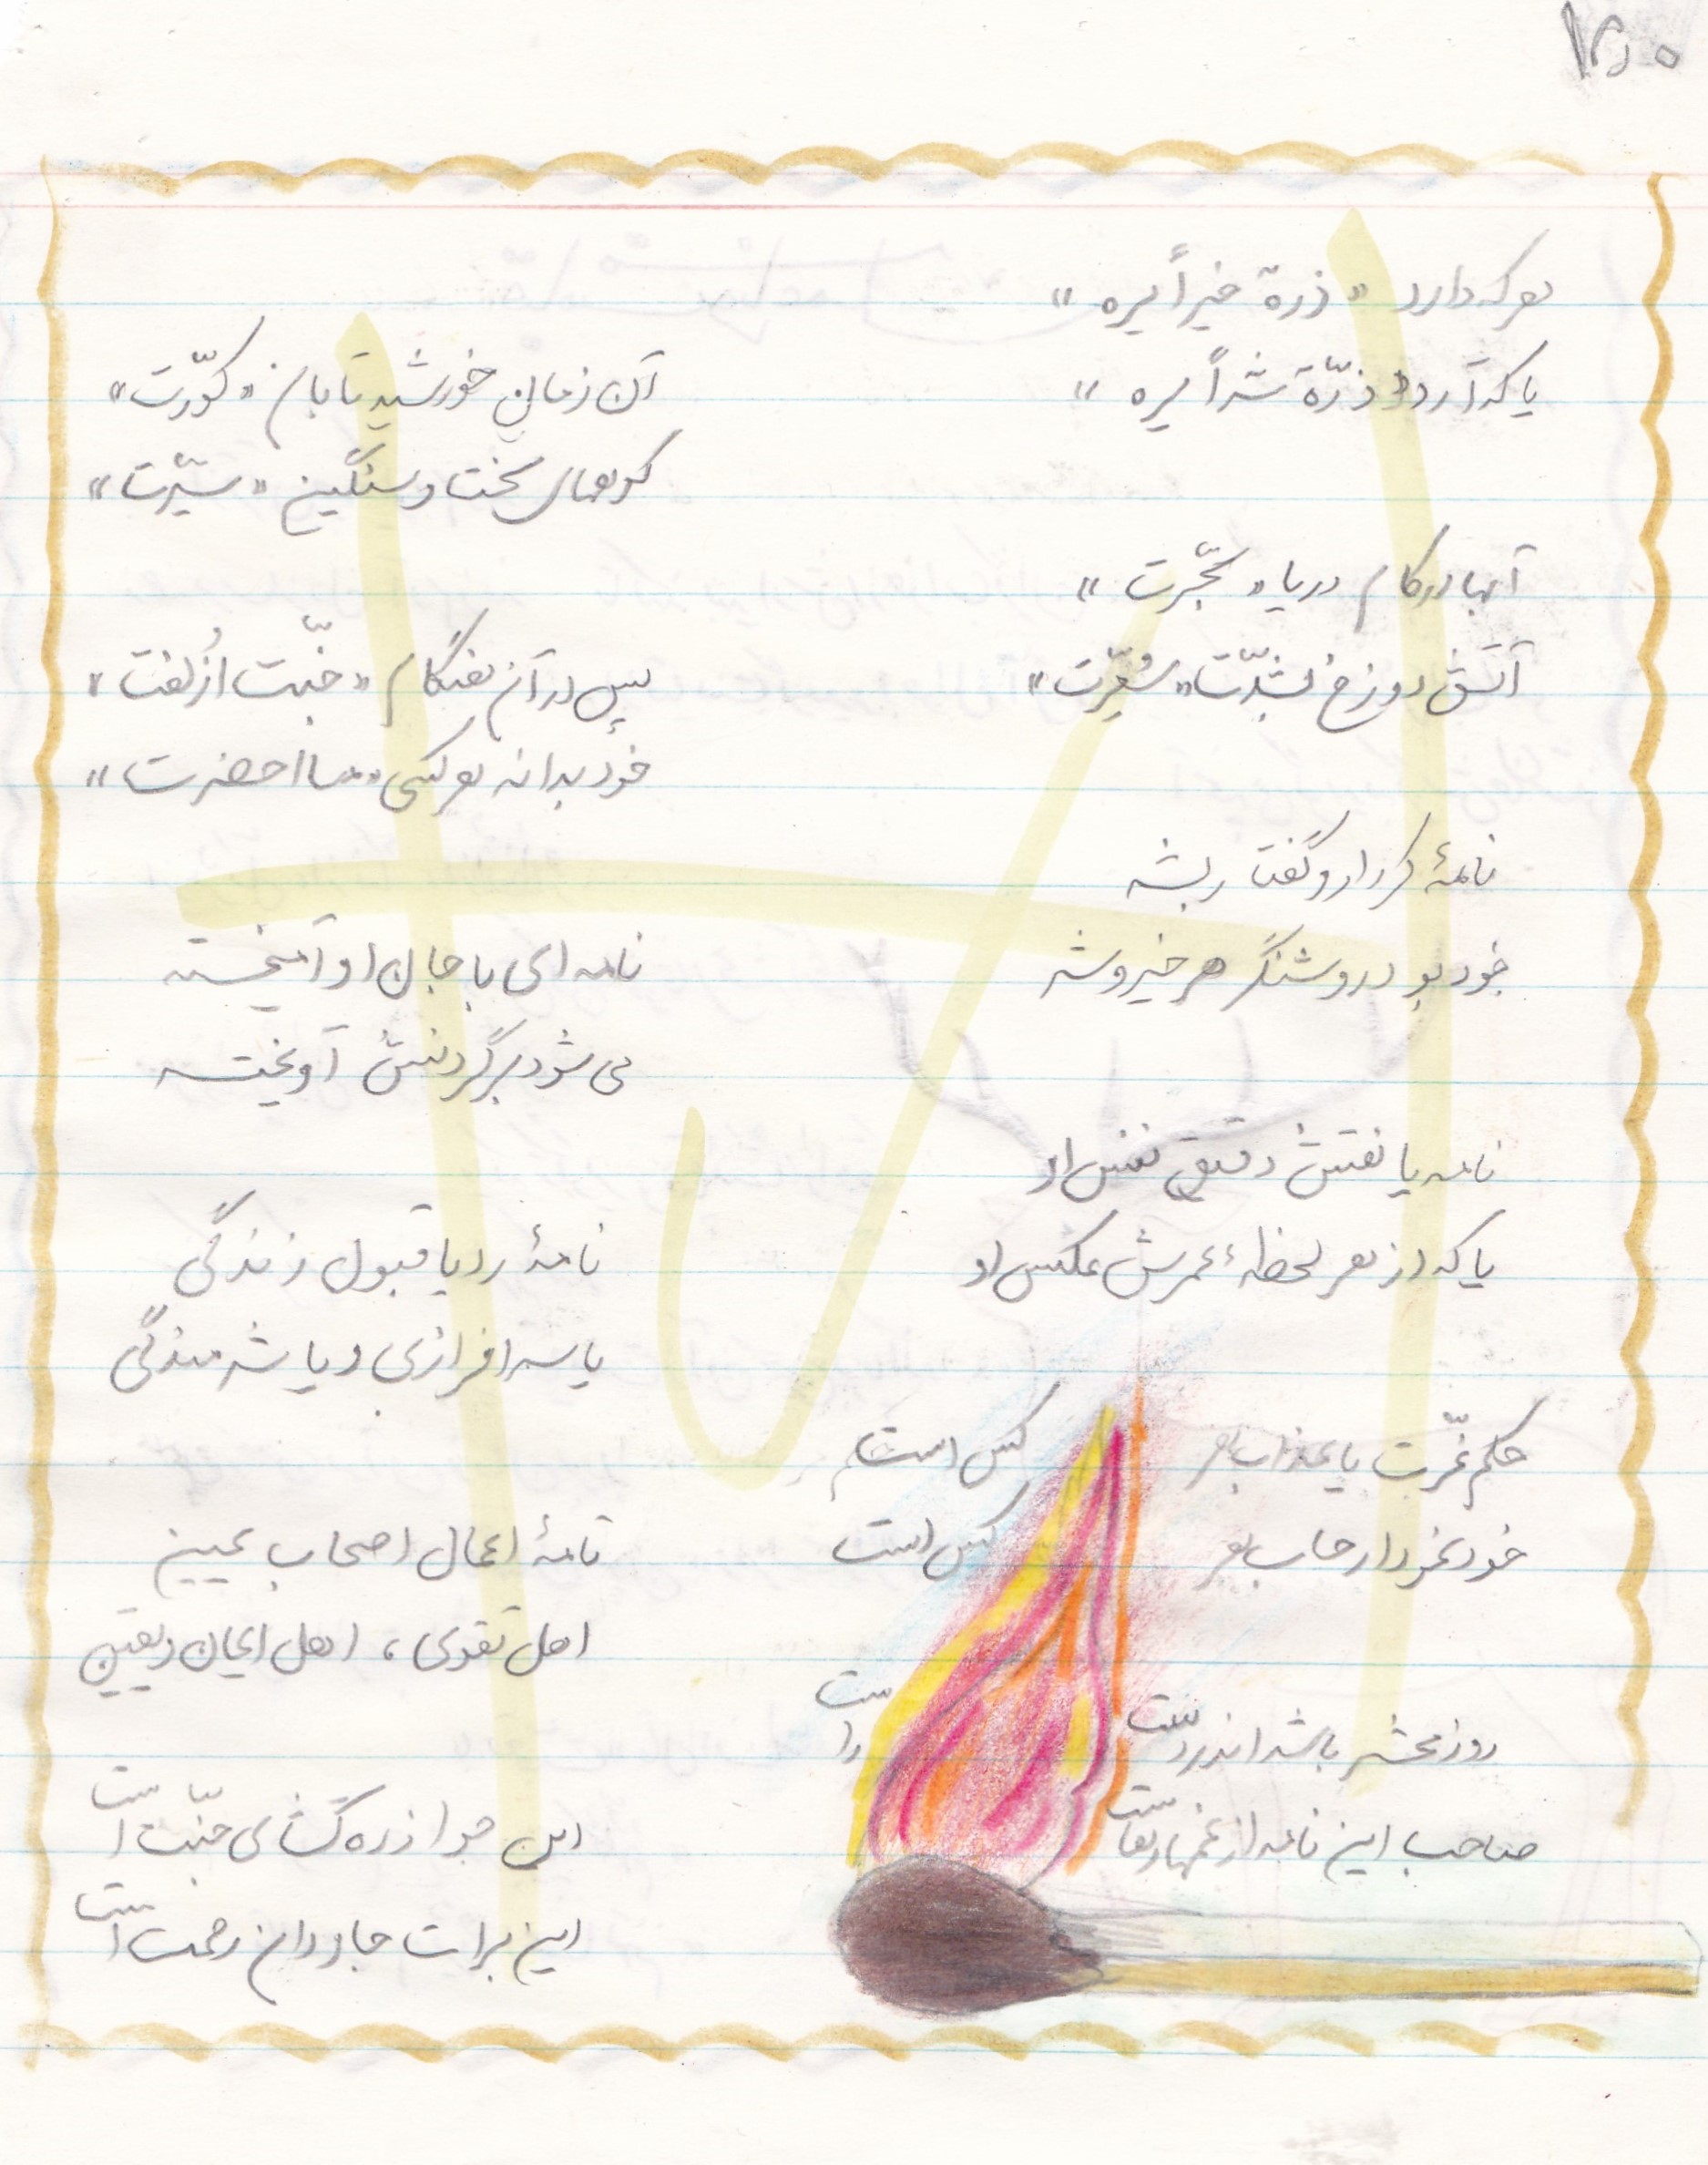 ۱۵۰
هر که دارد «ذرة خیراً یره»
یا که آرد «ذرّة شراً یره»
آن زمان خورشید تابان «کوّرت»
کوههای سخت و سنگین «سیّرت»
آبها در کام دریا «سجّرت»
آتش دوزخ بشدّت «سُعّرت»
پس در آن هنگام «جنّت اُزلفت»
خود بداند هر کسی «ما احضرت»
نامهٔ کردار و گفتار بشر
خود بود روشنگر هر خیر و شر
نامه ای با جان او آمیخته
می شود بر گردنش آویخته
نامه یا نقش دقیق نفس او
یا که از هر لحظهٔ عمرش عکس او
نامهٔ رد یا قبول زندگی
یا سرافرازی و یا شرمندگی
حکم عزّت یا عذاب هر کس است
خود نمودار حساب هر کس است
نامهٔ اعمال اصحاب یمین
اهل تقوی، اهل ایمان و یقین
روز محشر باشد اندر دست راست
صاحب این نامه از غمها رهاست
این جواز ره گشای جنّت است
این برات جاودان رحمت است